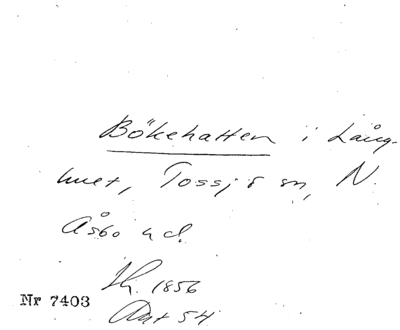 Bökehatten i Lång-
huet, Tossjö sn, N.
Åsbo hd.
1856
Nr 7403
Akt 54